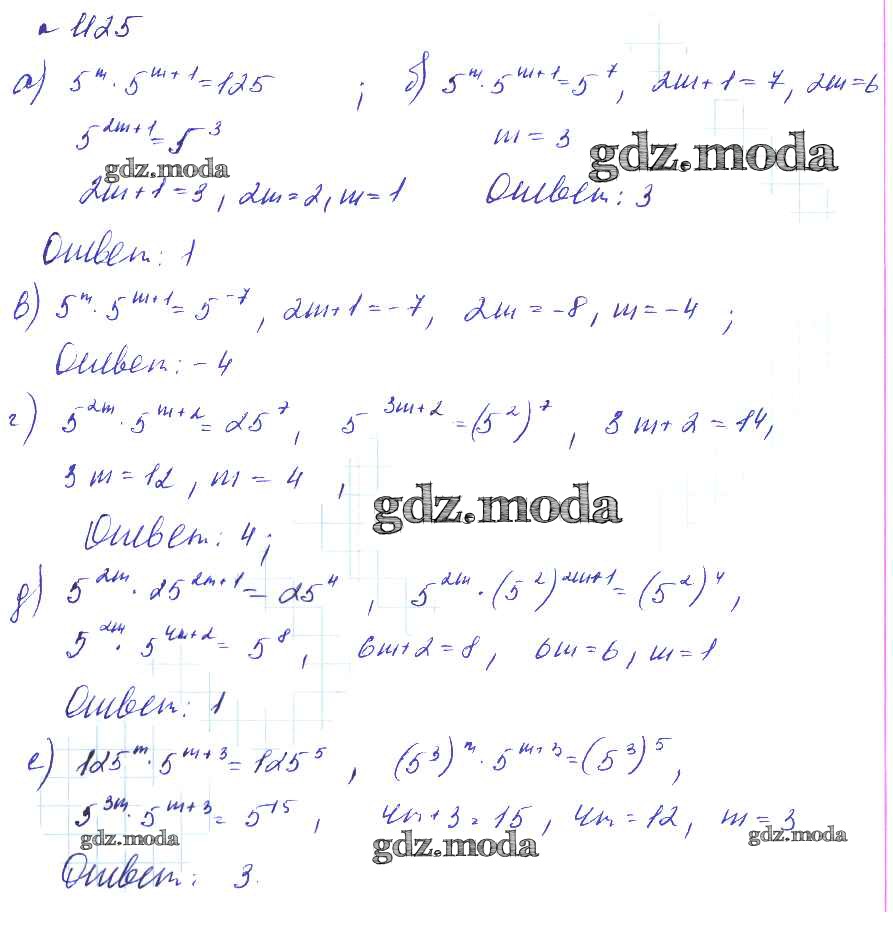 № 1125
а) 5^m · 5^{m+1} = 125 ; б) 5^m · 5^{m+1} = 5^7, 2m+1 = 7, 2m = 6
5^{2m+1} = 5^3 m = 3
gdz.moda gdz.moda
2m+1 = 3, 2m = 2, m = 1 Ответ: 3
Ответ: 1
в) 5^m · 5^{m+1} = 5^{-7}, 2m+1 = -7, 2m = -8, m = -4 ;
Ответ: -4
г) 5^{2m} · 5^{m+2} = 25^7, 5^{3m+2} = (5^2)^7, 3m+2 = 14,
3m = 12, m = 4,
gdz.moda
Ответ: 4;
д) 5^{2m} · 25^{2m+1} = 25^4, 5^{2m} · (5^2)^{2m+1} = (5^2)^4,
5^{2m} · 5^{4m+2} = 5^8, 6m+2 = 8, 6m = 6, m = 1
Ответ: 1
е) 125^m · 5^{m+3} = 125^5, (5^3)^m · 5^{m+3} = (5^3)^5,
5^{3m} · 5^{m+3} = 5^{15}, 4m+3 = 15, 4m = 12, m = 3
gdz.moda gdz.moda gdz.moda
Ответ: 3.